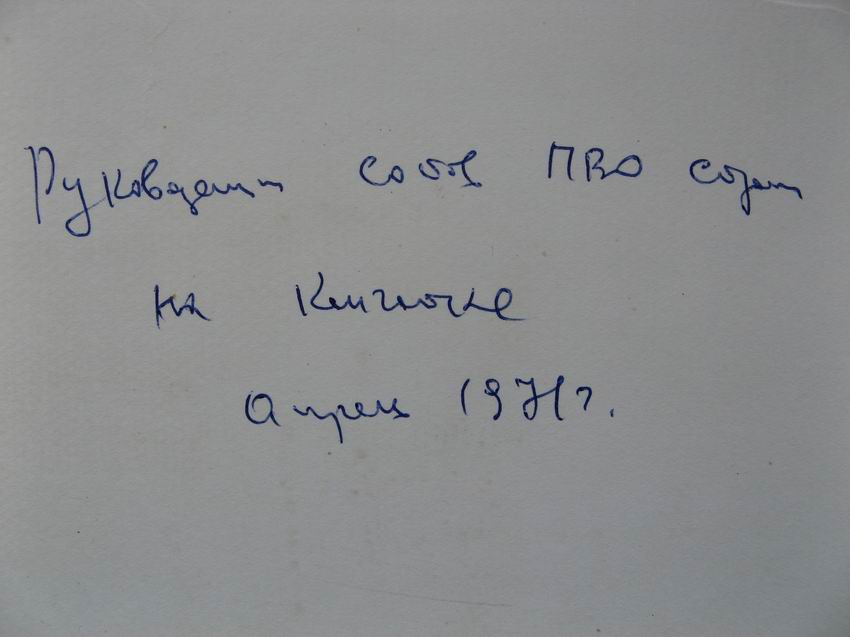 Руководящий состав ПВО страны
на Камчатке
Апрель 1971 г.